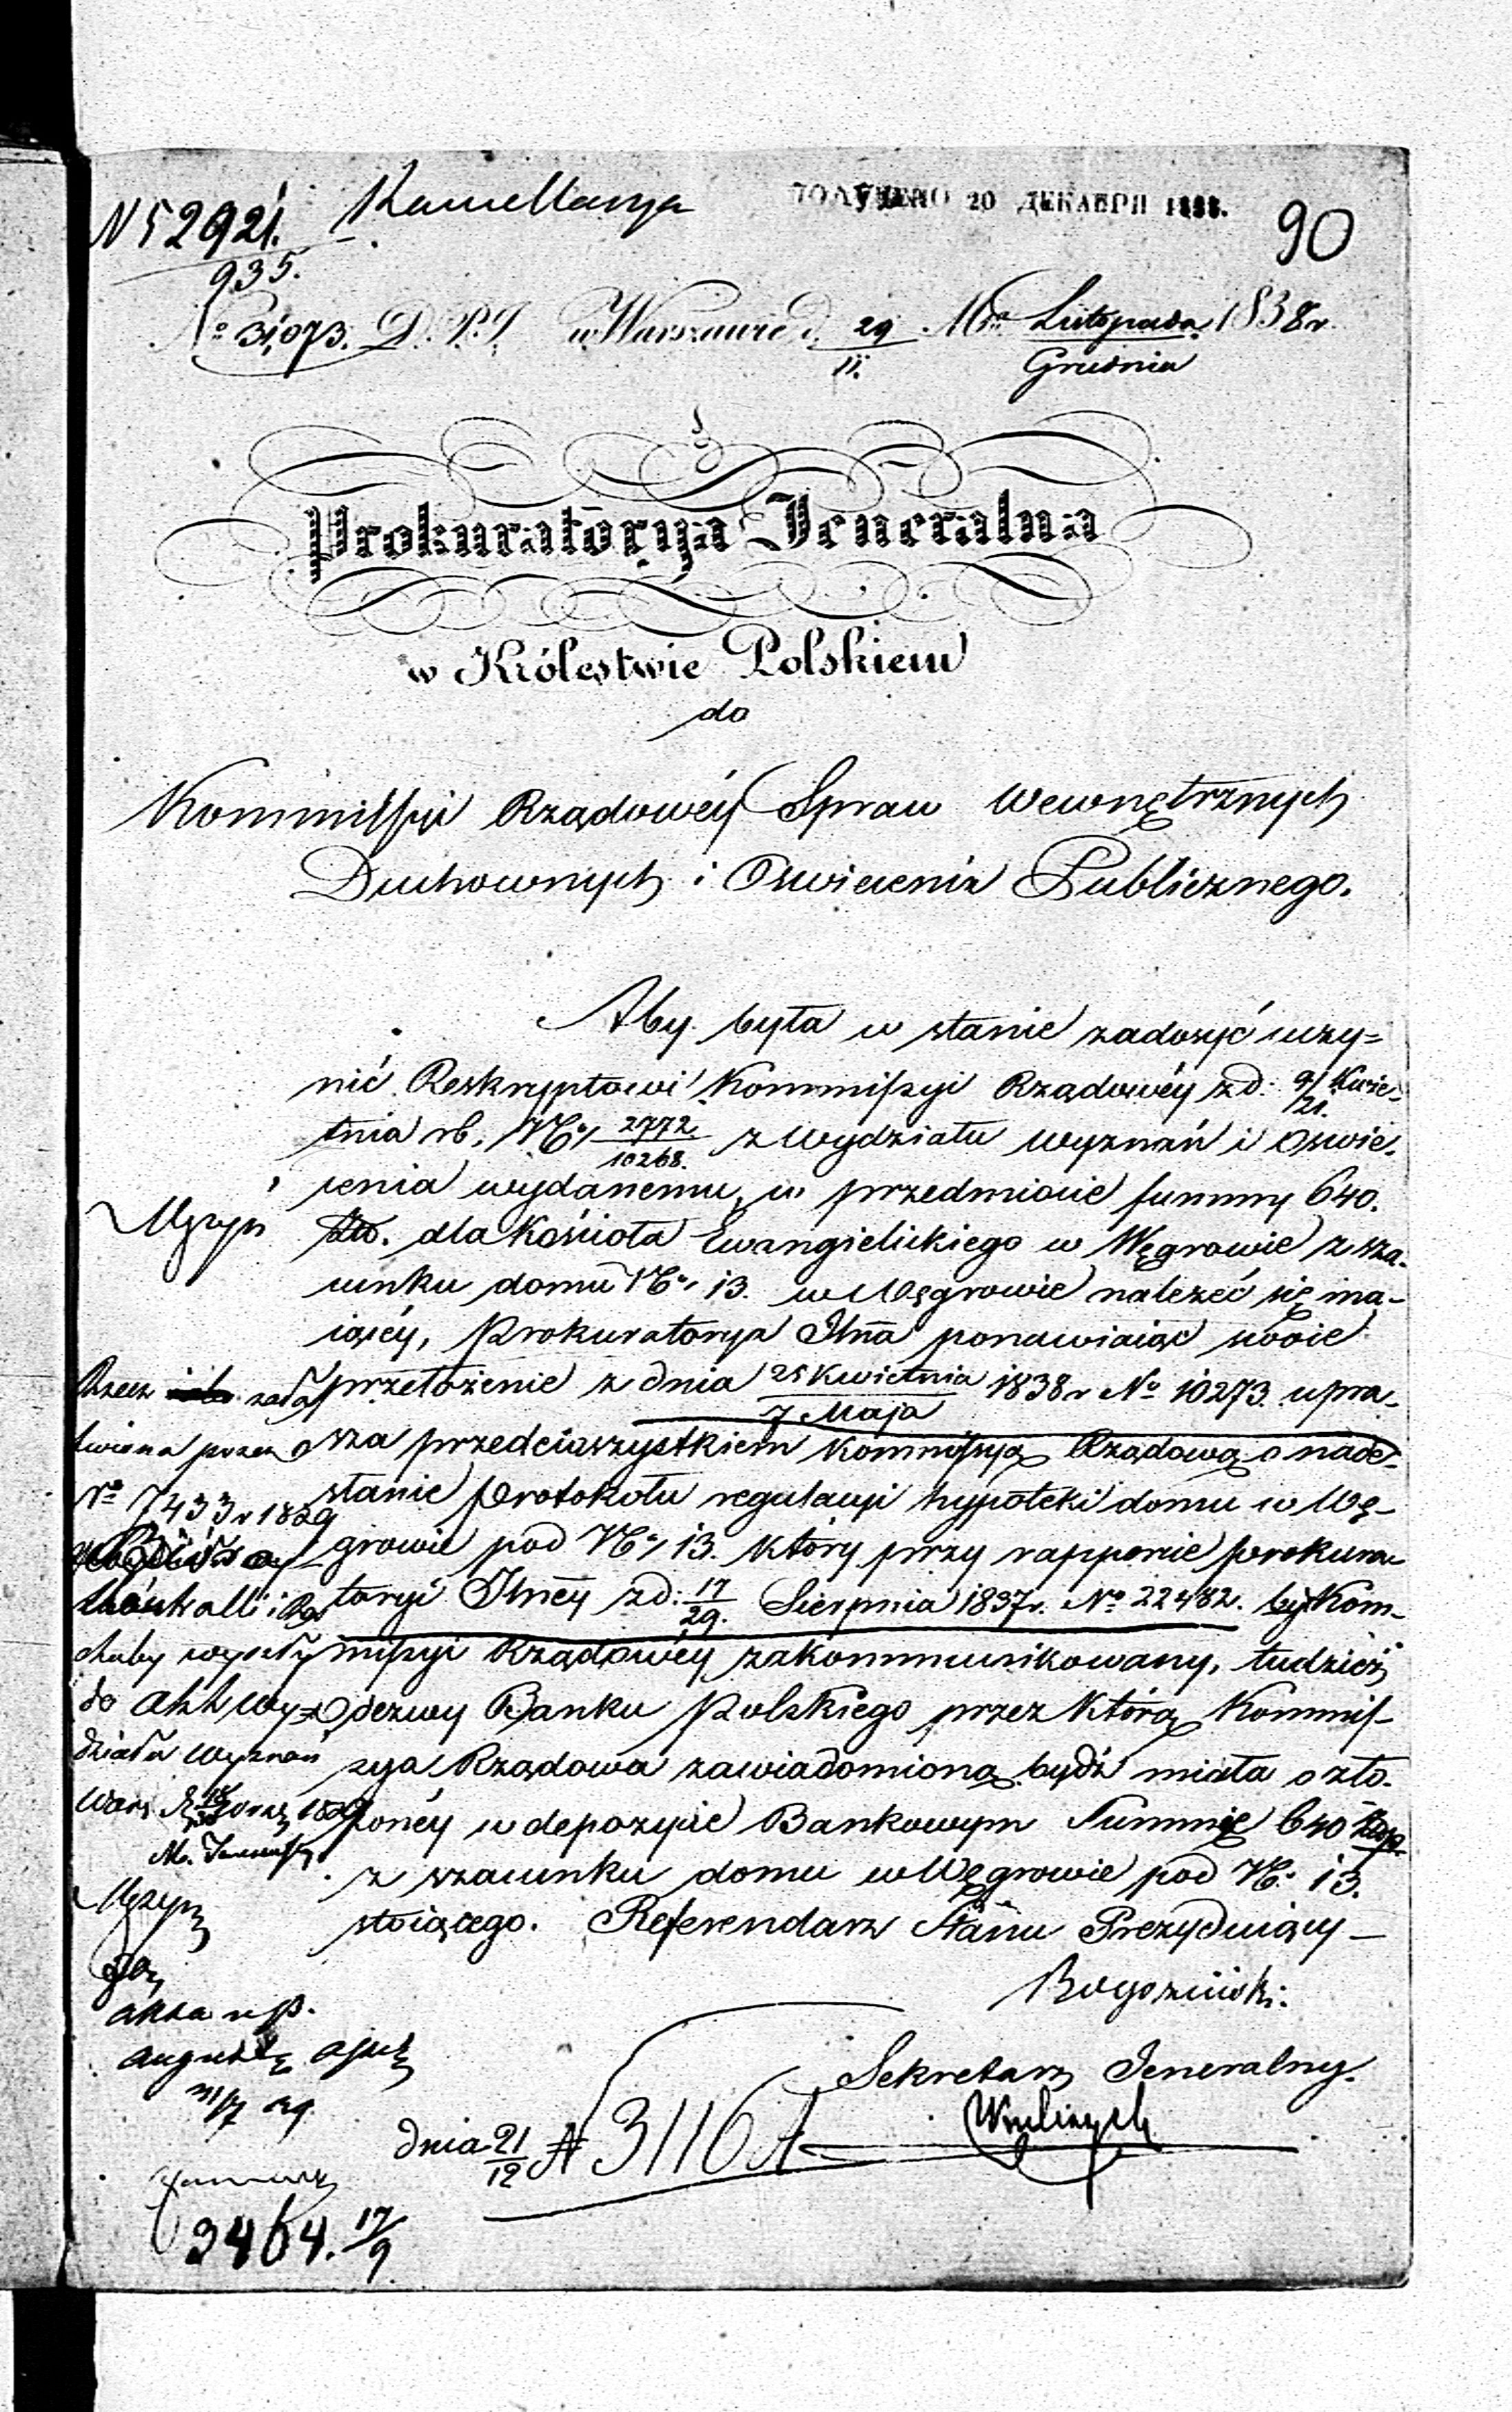 N 52921.
935.
ПОЛУЧЕНО 20 ДЕКАБРЯ 1838.
90
No 31,073. D. P. J. w Warszawie d. 29/11. Mca Listopada/Grudnia 1838 r.
Prokuratorya Jeneralna
w Królestwie Polskiem
do
Kommissyi Rządowéy Spraw Wewnętrznych
Duchownych i Oswiecenia Publicznego.
Aby była w stanie zadosyć uczy=
nić Reskryptowi Kommissyi Rządowéy z d: 9/21. Kwie-
tnia rb. No 2772/10268. z Wydziału wyznań i Oswie-
cenia wydanemu, w przedmiocie summy 640.
Złp. dla Kościoła Ewangielickiego w Węgrowie z sza-
cunku domu No 13. w Węgrowie należéć się ma-
iącéy, Prokuratorya Jlna ponawiaiąc swoie
przełożenie z dnia 25 Kwietnia/7 Maja 1838 r No 10273. upra-
sza przedewszystkiem Kommissyą Rządową o nade-
słanie Protokołu regulacyi hypoteki domu w Wę-
growie pod No 13. który przy rapporcie Prokura-
toryi Jlnéy z d: 17/29. Sierpnia 1837 r. No 22482. był Kom-
missyi Rządowéy zakommunikowany, tudzież
Odezwy Banku Polskiego przez którą Kommis-
sya Rządowa zawiadomioną bydź miała o zło-
żonéy w depozycie Bankowym Summie 640 Złp.
z szacunku domu w Węgrowie pod No 13.
stoiącego. Referendarz Stanu Prezyduiący
Sekretarz Jeneralny.
Rzecz zała
twiona przez
No 7433 r 1829
do akt Wy-
działu Wyznań
akta
dnia 21/12 N 3116
3464. 17/9